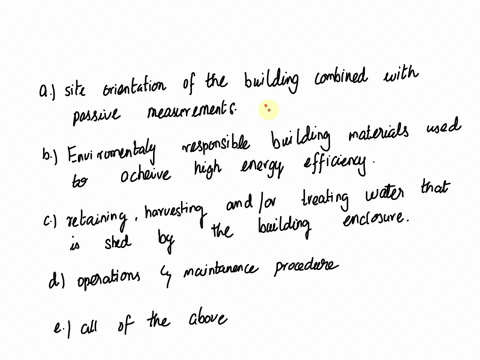 a.) site orientation of the building combined with
passive measurements.
b.) Enviromentaly responsible building materials used
to acheive high energy efficiency.
c.) retaining, harvesting and/or treating water that
is shed by the building enclosure.
d) operations & maintanence procedure
e.) all of the above